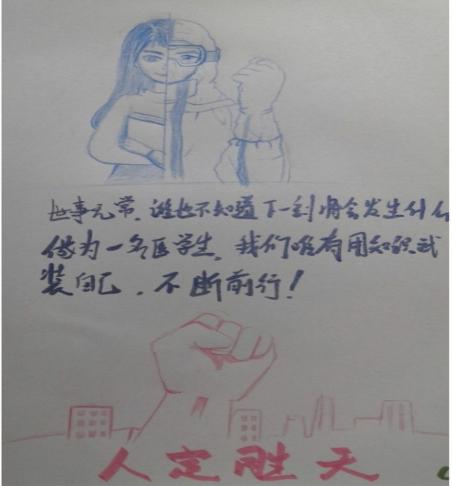 世事无常，谁也不知道下一刻将会发生什么
做为一名医学生，我们唯有用知识武
装自己，不断前行！
人定胜天